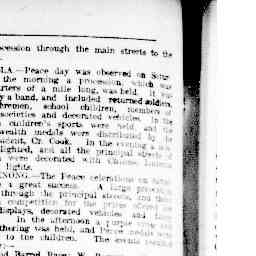 cession through the main streets to the
LA.—Peace day was observed on
the morning a procession, which was
rters of a mile long, was held. It was
y a band, and included returned soldiers,
bremen, school children, members of
societies and decorated vehicles. In the
children's sports were held, and the
wealth medals were distributed by the
ident, Cr. Cook. In the evening a
lighted, and all the principal streets
were decorated with Chinese lanterns
lights.
NONG.—The Peace celebrations on
a great success. A large procession
through the principal streets, and then
competition for the prizes offered for
displays, decorated vehicles and
In the afternoon a
thering was held, and Peace medals were
to the children. The events resulted